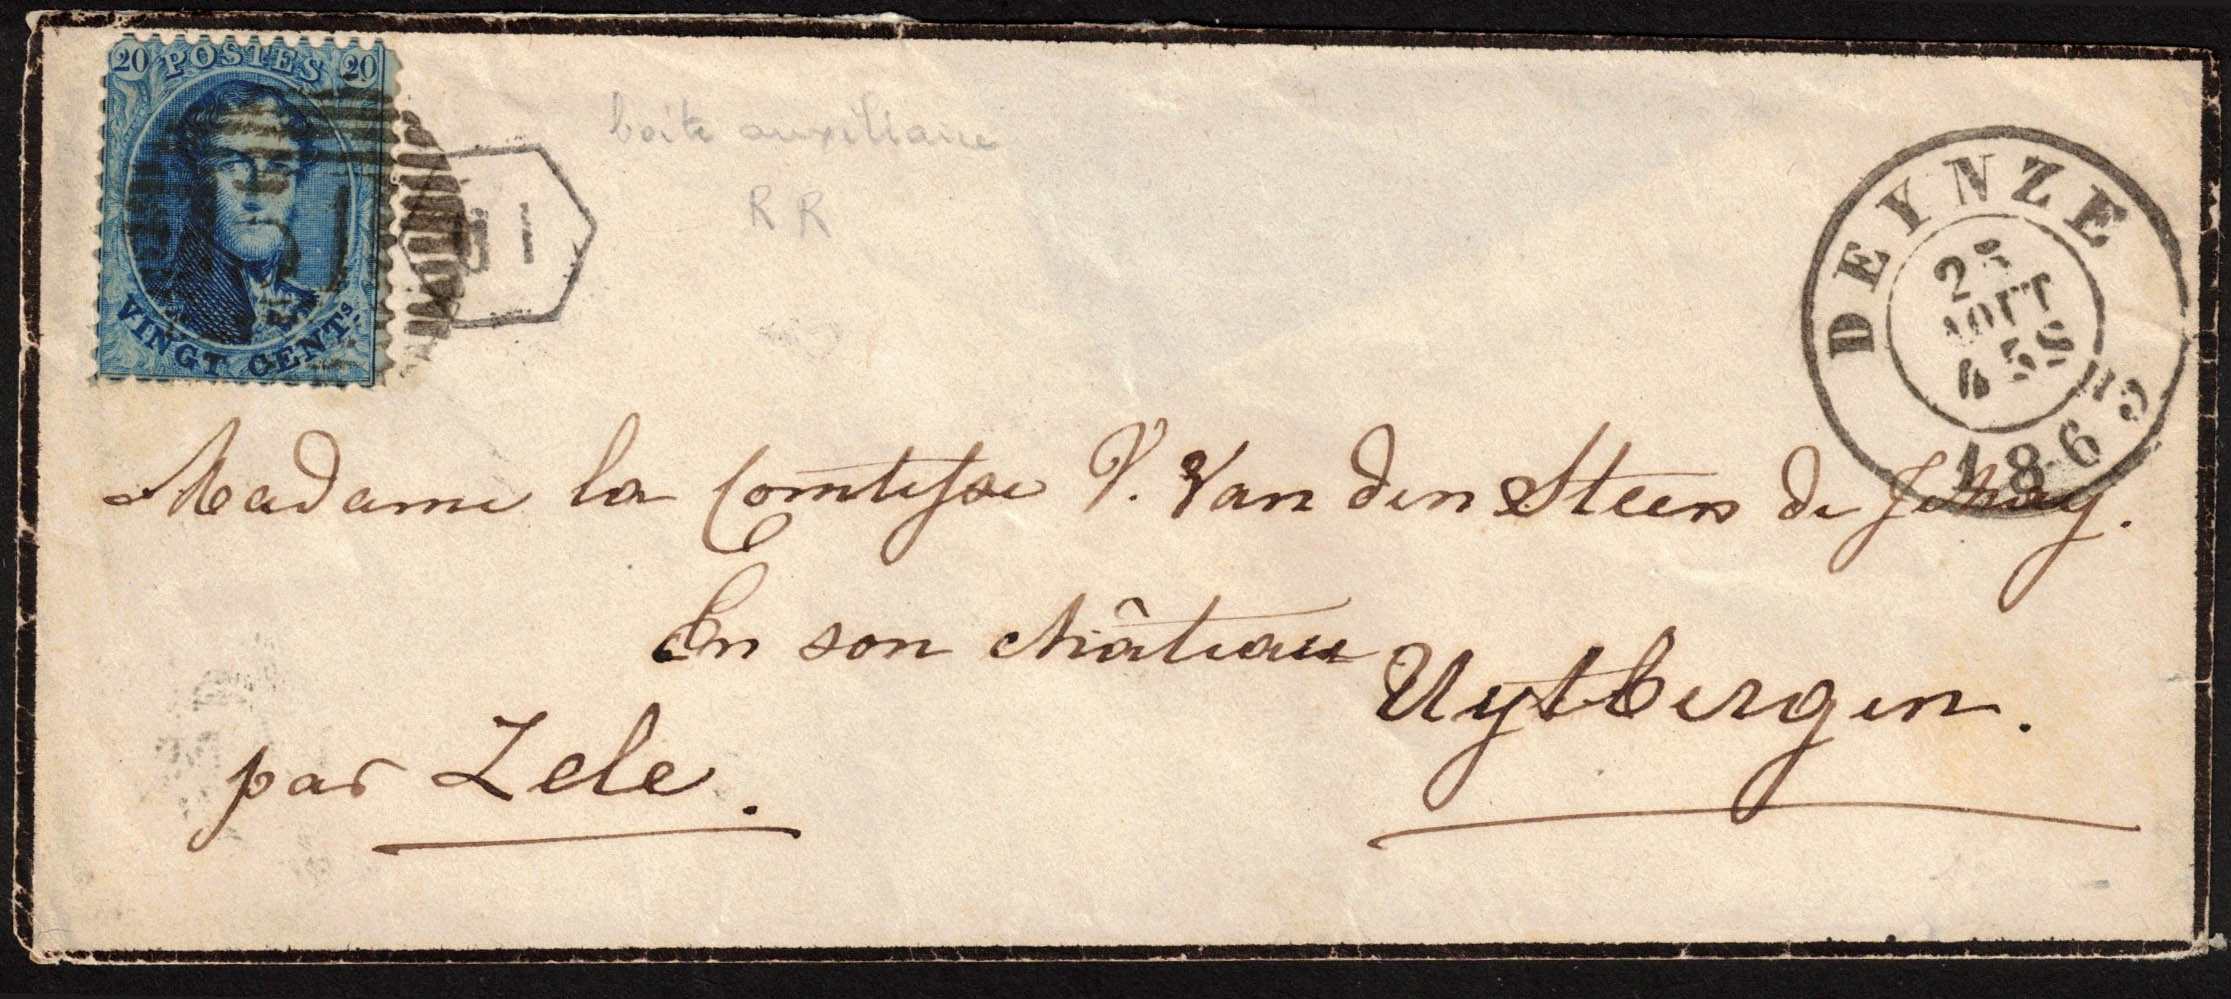 20 POSTES 20
VINGT CENTS.
boîte auxiliaire
R R
DEYNZE
AOUT
186
Madame la Comtesse V. Van den Steen de Jehay.
En son château
Uytbergen.
par Zele.